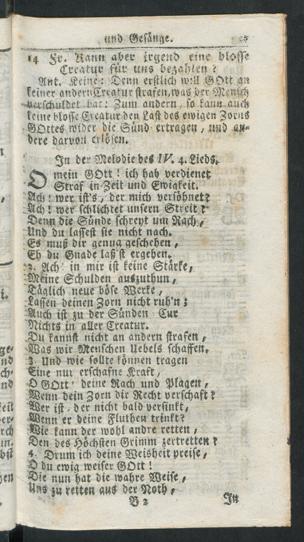 und Gesänge.
14 Fr. Kann aber irgend eine blosse
Creatur für uns bezahlen?
Ant. Keine: Denn erstlich will GOtt an
keiner andern Creatur strafen, was der Mensch
verschuldet hat: Zum andern, so kann auch
keine blosse Creatur den Last des ewigen Zorns
GOttes wider die Sünd ertragen, und an-
dere darvon erlösen.
In der Melodie des IV. 4. Lieds.
O mein GOtt! ich hab verdienet
Straf in Zeit und Ewigkeit.
Ach! wer ist's, der mich versöhnet?
Ach! wer schlichtet unsern Streit?
Denn die Sünde schreyt um Rach,
Und du lassest sie nicht nach.
Es muß dir genug geschehen,
Eh du Gnade läßst ergehen.
2. Ach! in mir ist keine Stärke,
Meine Schulden auszuthun,
Täglich neue böse Werke,
Lassen deinen Zorn nicht ruh'n;
Auch ist zu der Sünden Cur
Nichts in aller Creatur.
Du kannst nicht an andern strafen,
Was wir Menschen Uebels schaffen.
3. Und wie sollte können tragen
Eine nur erschafne Kraft,
O GOtt! deine Rach und Plagen,
Wenn dein Zorn die Recht verschaft?
Wer ist, der nicht bald versinkt,
Wenn er deine Fluthen trinkt?
Wie kann der wohl andre retten,
Den des Höchsten Grimm zertretten?
4. Drum ich deine Weisheit preise,
O du ewig weiser GOtt!
Die nun hat die wahre Weise,
Uns zu retten aus der Noth,
B 2 In